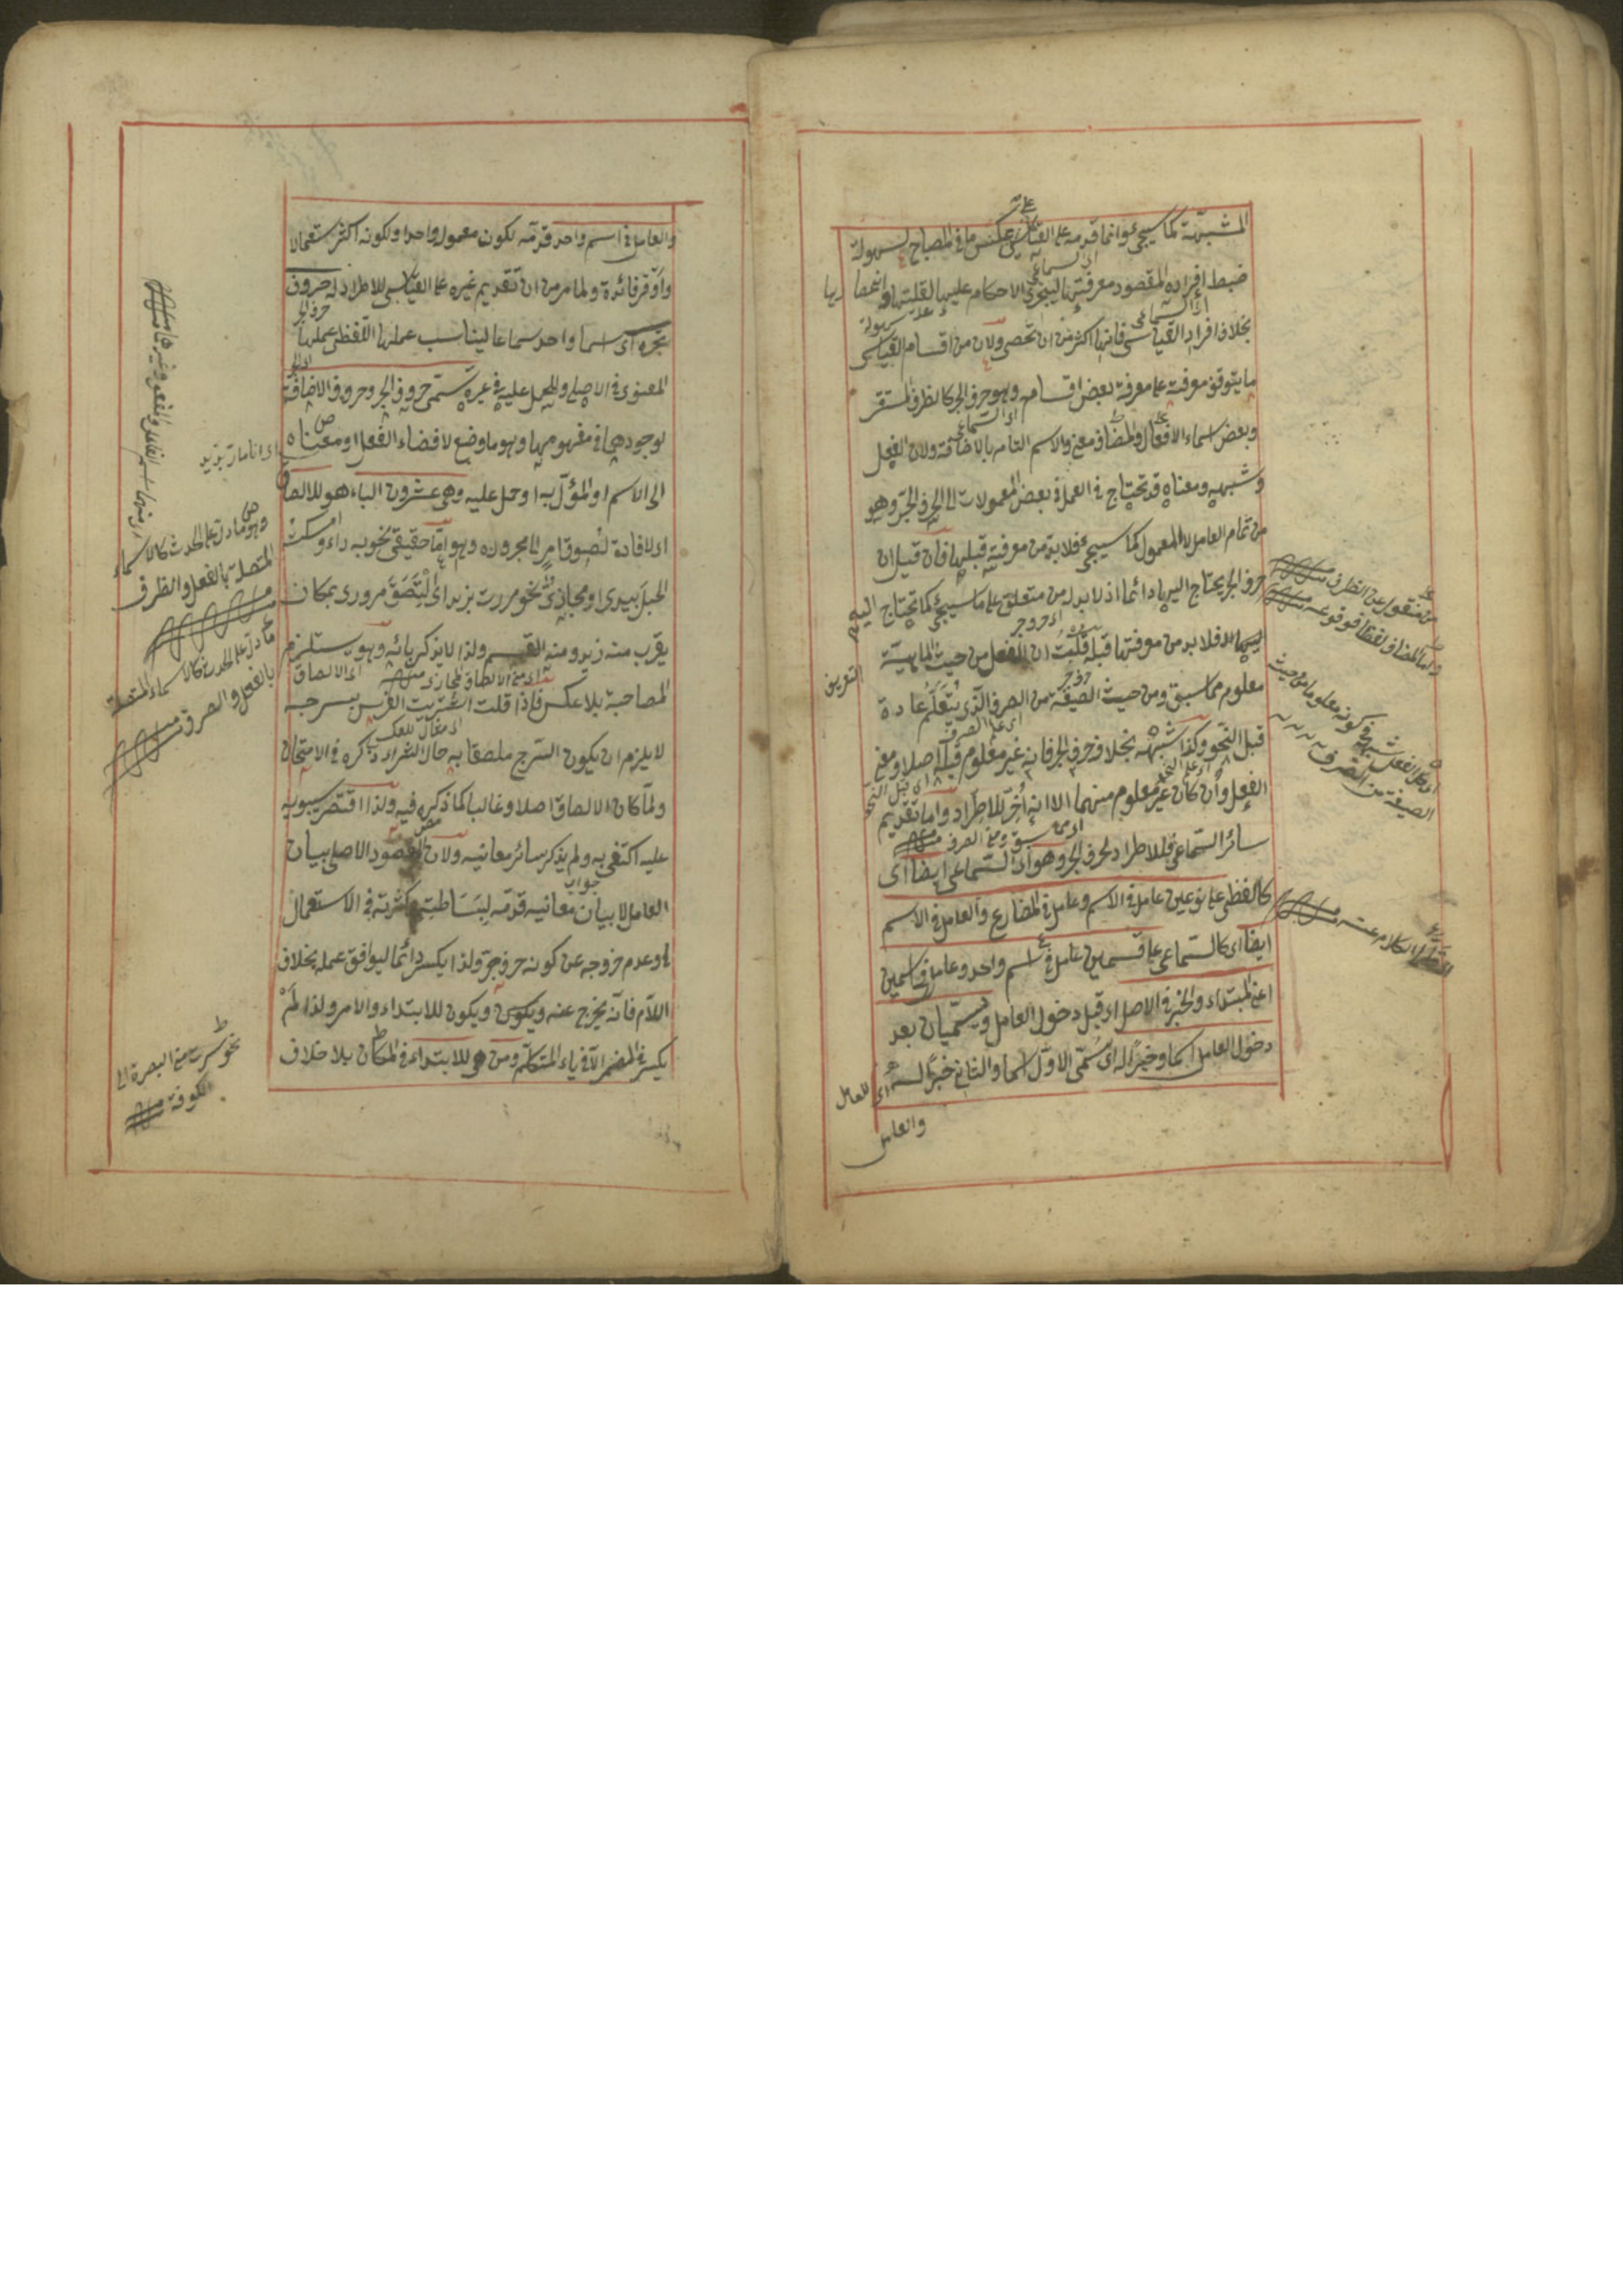 المشبهة كما سيجئ وانما قدمه على القياسي عكس ما في المصباح لسهولة
ضبط افراده المقصود معرفتها ليجرى الاحكام عليها لقلتها وانحصارها
بخلاف افراد القياسى فانها اكثر من ان تحصى ولان من اقسام القياسى
ما يتوقف معرفته على معرفة بعض اقسامه وهو حرف الجر كالظرف المستقر
وبعض اسماء الافعال والمضاف معنى والاسم التام بالاضافة ولان الفعل
وشبهه ومعناه قد تحتاج فى العمل فى بعض المعمولات الى الحرف الجر وهو
من تمام العامل لا المعمول كما سيجئ فلا بد من معرفته قبلها فان قيل ان
حرف الجر يحتاج اليها دائما اذ لا بد له من متعلق على ما سيجئ كما تحتاج اليه
فلا بد من معرفتها قبله قلت ان الفعل من حيث الماهية
معلوم مما سبق ومن حيث الصيغة من الصرف الذى يتعلم عادة
قبل النحو وكذا شبهه بخلاف حرف الجر فانه غير معلوم قبل اصلا ومعنى
الفعل وان كان غير معلوم منهما الا انه اخر للاطراد واما تقديم
سائر السماعى فللاطراد لحرف الجر وهو اى السماعى ايضا اى
كاللفظى على نوعين عامل فى الاسم وعامل فى المضارع والعامل فى الاسم
ايضا اى كالسماعى على قسمين عامل فى اسم واحد وعامل فى اسمين
اعنى المبتداء والخبر فى الاصل اى قبل دخول العامل ويسميان بعد
دخول العامل اسما وخبرا له اى سمى الاول اسما والثانى خبرا له
اى للعامل
والعامل
من منقول عن الظرف
الصيغة من الصرف
والعامل فى اسم واحد قدمه لكون معموله واحدا ولكونه اكثر استعمالا
واوفر فائدة ولما مر من ان تقديم غيره على القياسى للاطراد له حروف
تجره اى اسما واحد سماعا ليناسب عملها اللفظى عملها
المعنوى فى الاصل وللحمل عليه فى غيره تسمى حروف الجر وحروف الاضافة
لوجودهما فى مفهومهما وهو ما وضع لافضاء الفعل او معناه
الى الاسم او المؤل به او حمل عليه وهى عشرون الباء هو للالصاق
اى لافادة لصوق امر الى مجروره وهو اما حقيقى نحو به داء وامسكت
الحبل بيدى او مجازى نحو مررت بزيد اى التصق مرورى بمكان
يقرب منه زيد ومنه القسم ولذا لا يذكر بائه وهو يستلزم
المصاحبة بلا عكس فاذا قلت اشتريت الفرس بسرجه
لا يلزم ان يكون السرج ملصقا به حال الشراء ذكره فى الامتحان
ولما كان الالصاق اصلا وغالبا كما ذكره فيه ولذا اقتصر سيبويه
عليه اكتفى به ولم يذكر سائر معانيه ولان المقصود الاصلى بيان
العامل لا بيان معانيه قدمه لبساطته وكثرته فى الاستعمال
وعدم خروجه عن كونه حرف جر ولذا يكسر دائما ليوافق عمله بخلاف
اللام فانه يخرج عنه ويكون للابتداء والامر ولذا لم
يكسر فى المضمر الا فى ياء المتكلم ومن هو للابتداء فى المكان بلا خلاف
وهو ما دل على الحدث كالاسماء
المتصلة بالفعل والظرف
ما دل على الحدث كالاسماء المتصلة
بالفعل والصرف
نحو سرت من البصرة الى
الكوفة